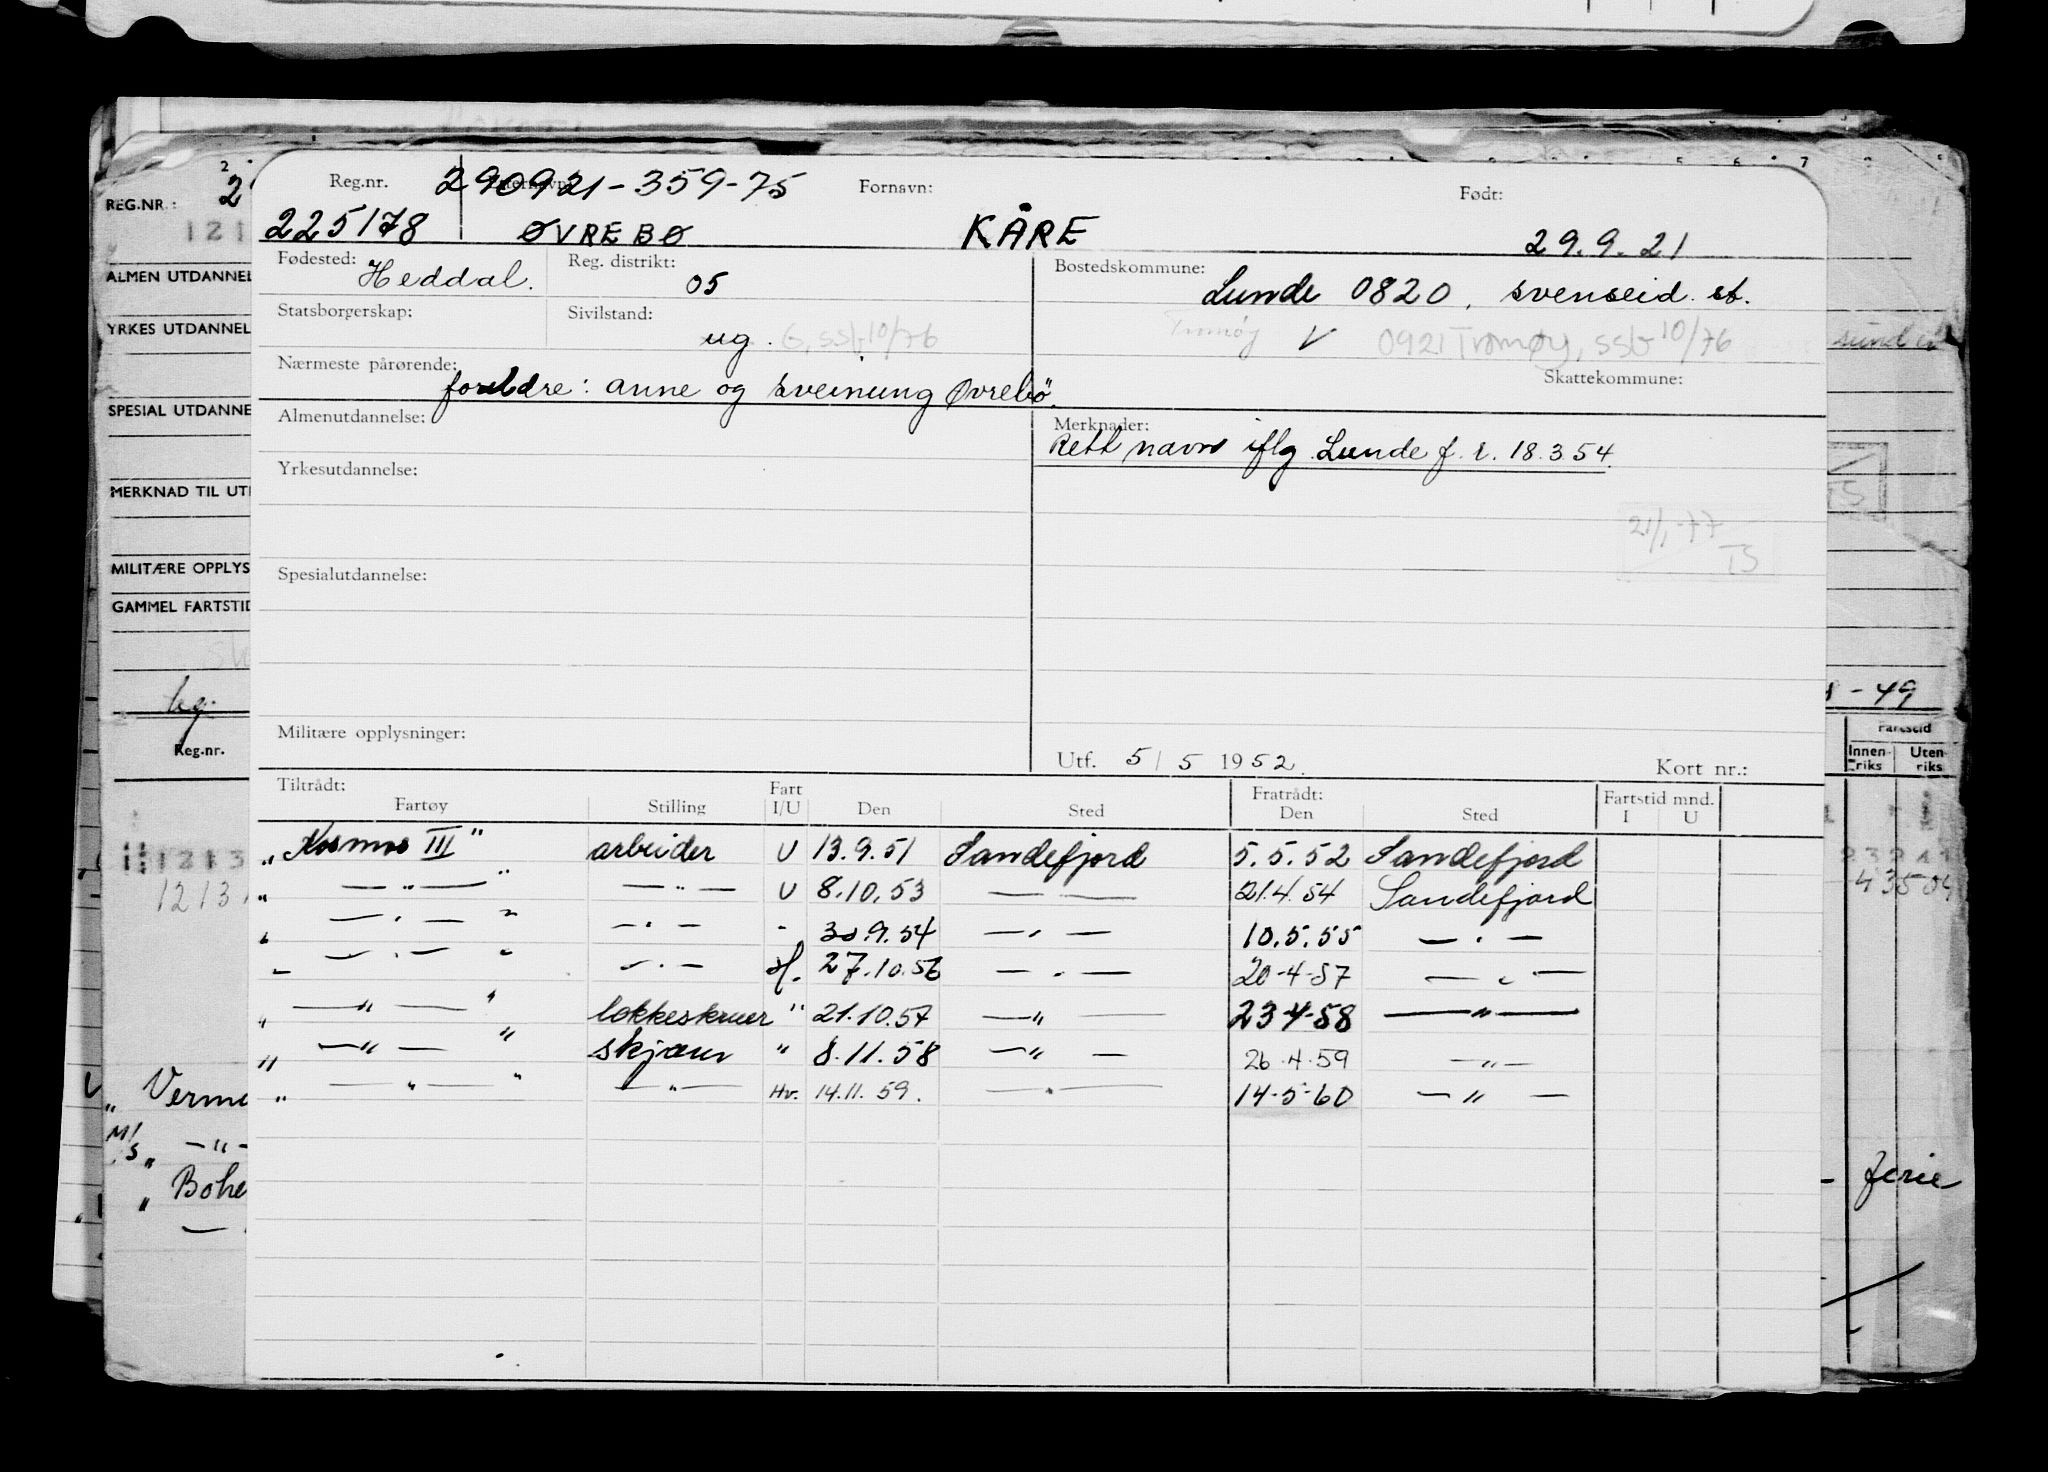 Reg.nr. 290921-359-75 Fornavn: Født:
225178 ØVREBØ KÅRE 29.9.21
Fødested: Heddal. Reg. distrikt: 05 Bostedskommune: Lunde 0820, svenseid st.
Statsborgerskap: Sivilstand: ug. G, SSb 10/76 Tromøy V 0921 Tromøy, SSb 10/76
Nærmeste pårørende: foreldre: anne og sveinung Øvrebö. Skattekommune:
Almenutdannelse: Merknader: Rett navn iflg. Lunde f. r. 18.3.54.
Yrkesutdannelse:
21/1-77 TS
Spesialutdannelse:
Militære opplysninger: Utf. 5/5 1952. Kort nr.:
Tiltrådt: Fart Fratrådt: Fartstid mnd.
Fartøy Stilling I/U Den Sted Den Sted I U
„Kosmos III" arbeider U 13.9.51 Sandefjord 5.5.52 Sandefjord
" —"— " —"— U 8.10.53 — — 21.4.54 Sandefjord
" —"— " —"— - 30.9.54 —"— 10.5.55 —"—
" —"— " —"— Hf. 27.10.56 —"— 20-4-57 —"—
" —"— " lokkeskruer " 21.10.57 —"— 23-4-58 —"—
" —"— " skjærer " 8.11.58 —"— 26.4.59 —"—
" —"— " —"— Hv. 14.11.59. —"— 14-5-60 —"—
REG.NR.: 2
121
ALMEN UTDANNEL
YRKES UTDANNEL
SPESIAL UTDANNE
MERKNAD TIL UT
MILITÆRE OPPLYS
GAMMEL FARTSTID
ug.
Reg.nr.
1213
1213
„ Verm
M/S „ —"—
„ Bohe
TS
- 49
Fartstid
Innen-riks Uten-riks
ferie